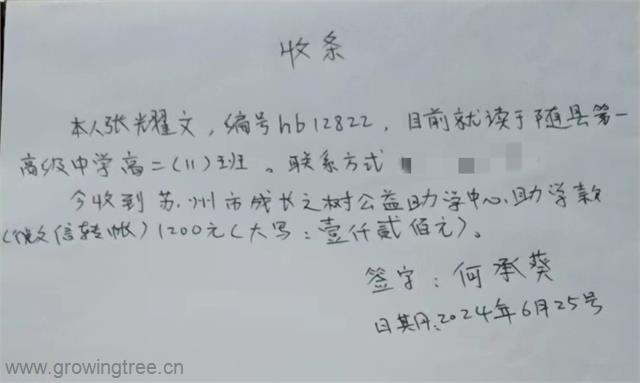 收条
本人张光耀文，编号hb12822，目前就读于随县第一
高级中学高二(11)班。联系方式
今收到苏州市成长之树公益助学中心助学款
(微信转帐)1200元(大写：壹仟贰佰元)。
签字：何承葵
日期：2024年6月25号
www.growingtree.cn